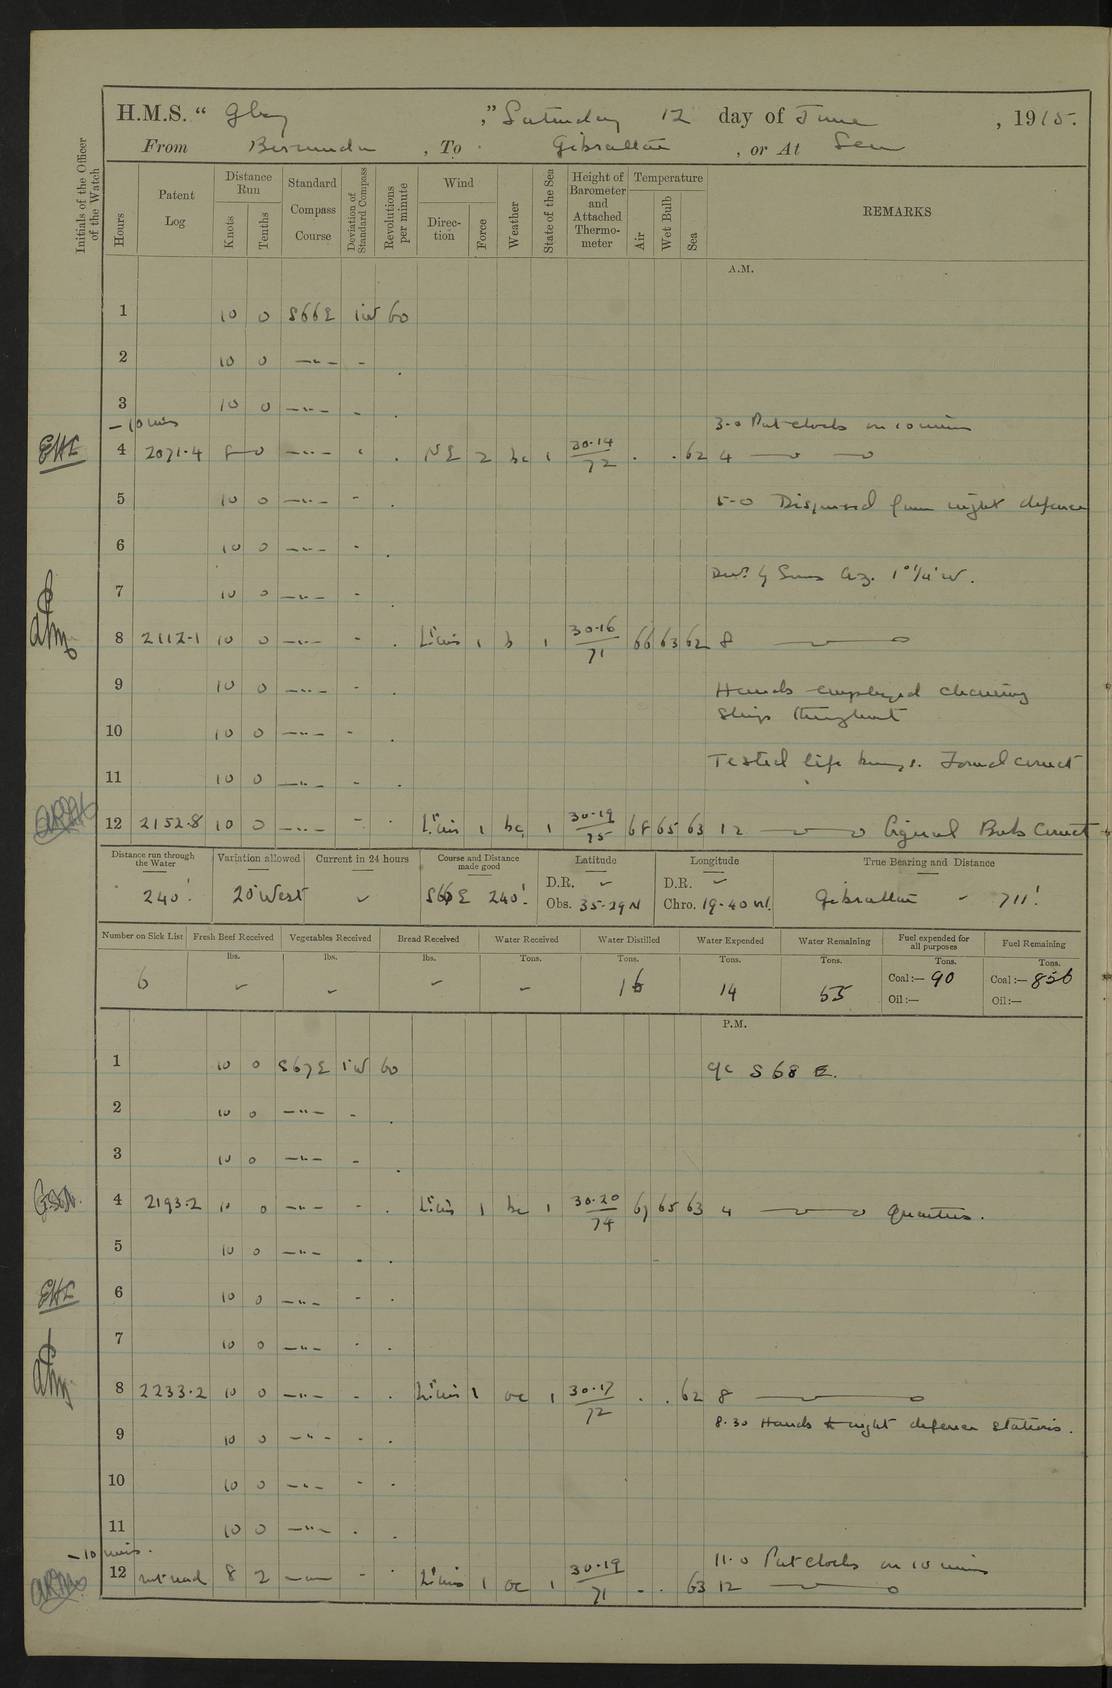 H.M.S. “ Glory ,” Saturday 12 day of June , 1915.
From Bermuda , To Gibraltar , or At Sea
Initials of the Officer of the Watch
Hours Patent Log Distance Run Knots Tenths Standard Compass Course Deviation of Standard Compass Revolutions per minute Wind Direction Force Weather State of the Sea Height of Barometer and Attached Thermometer Temperature Air Wet Bulb Sea REMARKS
A.M.
1 10 0 S66E 1W 60
2 10 0 —"— -
3 10 0 —"— -
— 10 mins 3-0 Put clocks on 10 mins
4 2071.4 8 0 —"— NE 2 bc 1 30.14 / 72 62 4
5 10 0 —"— - 5-0 Dispersed from night defence
6 10 0 —"— -
Devn by Suns Az. 1°1/4 W.
7 10 0 —"— -
8 2112.1 10 0 —"— - Lt airs 1 b 1 30.16 / 71 66 63 62 8
9 10 0 —"— - Hands employed cleaning
Ship throughout
10 10 0 —"— -
Tested life buoys. Found correct
11 10 0 —"— -
12 2152.8 10 0 —"— - Lt airs 1 bc 1 30.19 / 75 68 65 63 12 Correct
Distance run through the Water Variation allowed Current in 24 hours Course and Distance made good Latitude Longitude True Bearing and Distance
D.R. D.R.
240' 20° West S66E 240' Obs. 35-29 N Chro. 19-40 W. Gibraltar - 711'
Number on Sick List Fresh Beef Received Vegetables Received Bread Received Water Received Water Distilled Water Expended Water Remaining Fuel expended for all purposes Fuel Remaining
lbs. lbs. lbs. Tons. Tons. Tons. Tons. Tons. Tons.
6 16 14 55 Coal:— 90 Coal:— 856
Oil:— Oil:—
P.M.
1 10 0 S67E 1W 60 a/c S 68 E.
2 10 0 —"— -
3 10 0 —"— -
4 2193.2 10 0 —"— - Lt airs 1 bc 1 30.20 / 74 67 65 63 4 Quarters.
5 10 0 —"—
6 10 0 —"— -
7 10 0 —"—
8 2233.2 10 0 —"— - Lt airs 1 oc 1 30.17 / 72 62 8
8.30 Hands to night defence stations.
9 10 0 —"— -
10 10 0 —"— -
11 10 0 —"—
— 10 mins. 11.0 Put clocks on 10 mins
12 not read 8 2 —"— - Lt airs 1 oc 1 30.19 / 71 63 12